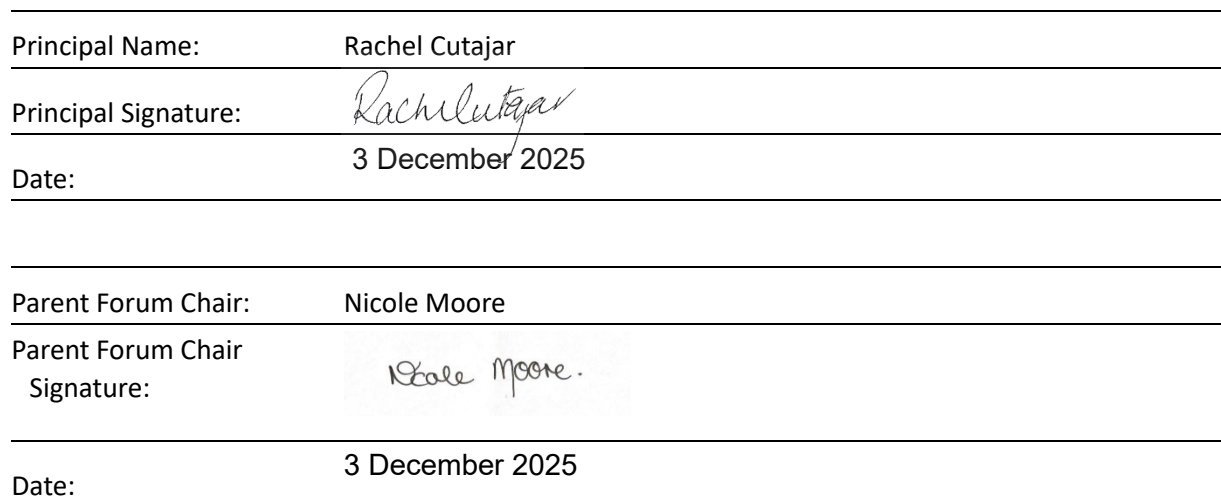 Principal Name: Rachel Cutajar
Principal Signature: Rachel Cutajar
Date: 3 December 2025
Parent Forum Chair: Nicole Moore
Parent Forum Chair
Signature: Nicole Moore.
Date: 3 December 2025